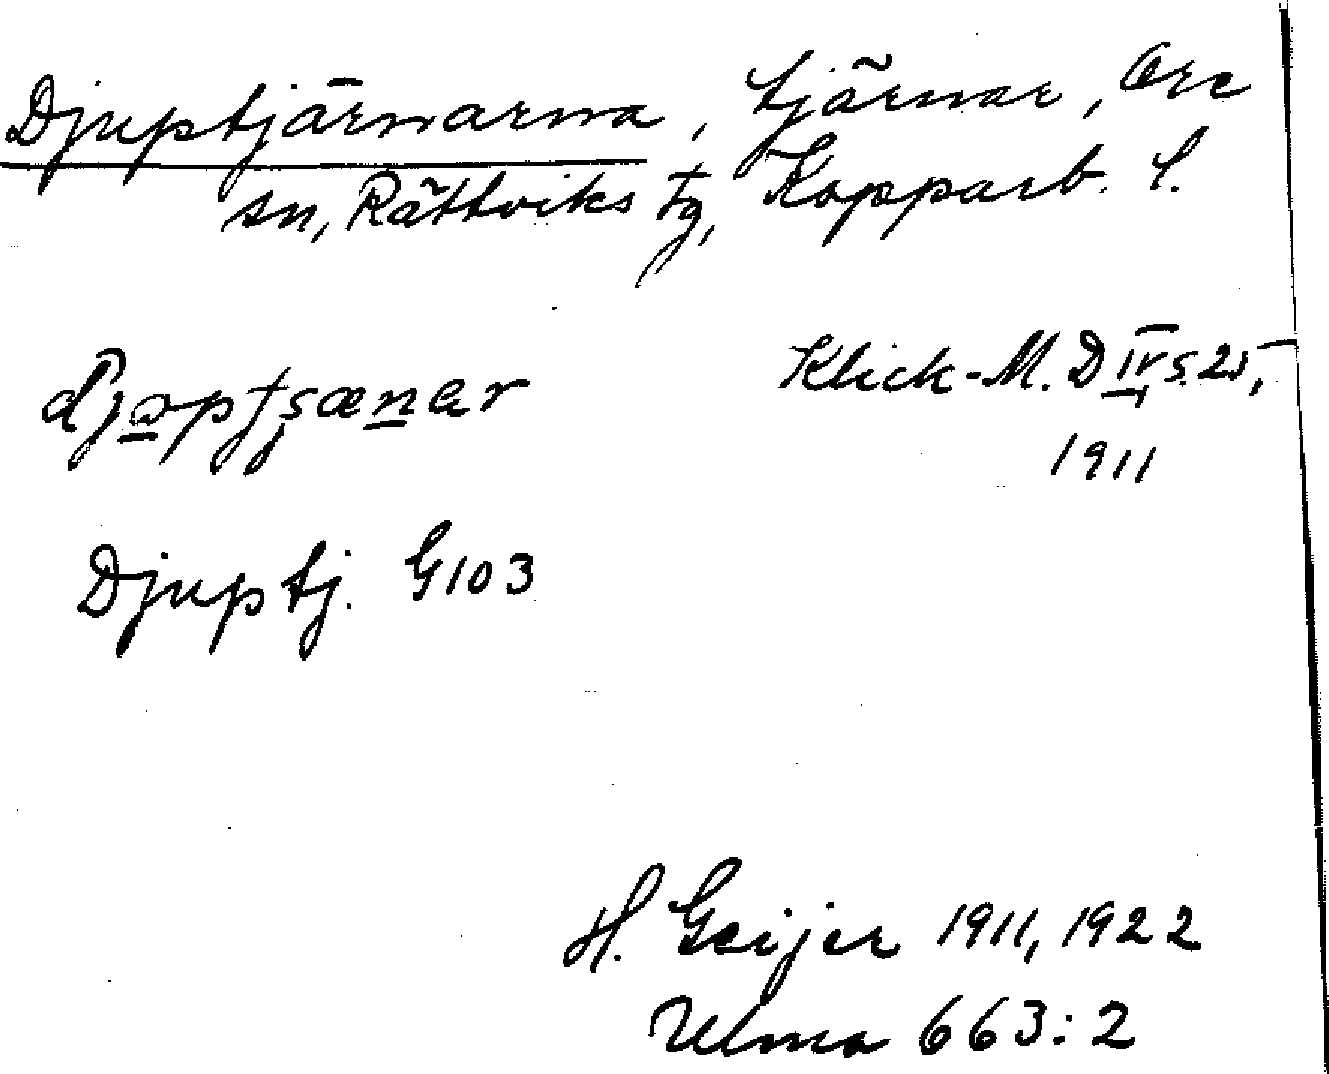 Djuptjärnarna, tjärnar, Ore
sn, Rättviks tg, Kopparb. l.
Klick-M. D IV s. 25,
1911
Djuptj. G103
H. Geijer 1911, 1922
Ulma 663:2